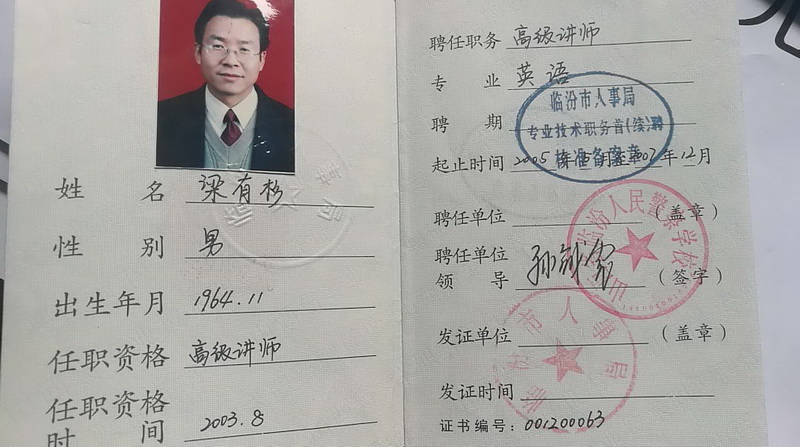 姓名 梁有杉
性别 男
出生年月 1964.11
任职资格 高级讲师
任职资格
时间 2003.8
聘任职务 高级讲师
专业 英语
聘期
起止时间 2005年 月 2007年12月
临汾市人事局
专业技术职务首(续)聘
核准备案章
聘任单位 (盖章)
临汾人民警察学校
聘任单位
领导 (签字)
发证单位 (盖章)
市人事局
发证时间
证书编号:001200063